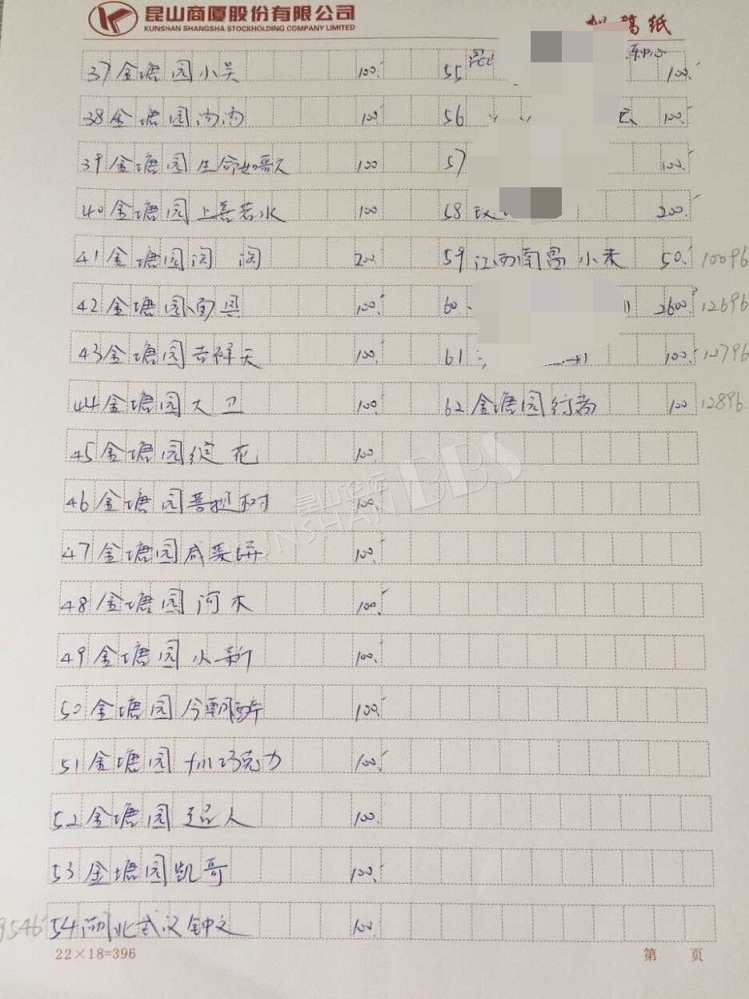 昆山商厦股份有限公司
KUNSHAN SHANGSHA STOCKHOLDING COMPANY LIMITED
稿纸
37 金塘园小吴 100.
38 金塘园 100.
39 金塘园生命如歌 100
40 金塘园上善若水 100
41 金塘园 200.
42 金塘园面具 100.
43 金塘园吉祥天 100.
44 金塘园大卫 100.
45 金塘园绽花 100
46 金塘园菩提树 100.
47 金塘园咸菜饼 100.
48 金塘园河木 100.
49 金塘园小新 100.
50 金塘园今朝醉 100.
51 金塘园巧克力 100.
52 金塘园超人 100.
53 金塘园凯哥 100.
9546 54 湖北武汉钟文 100
55 100.
56 100.
57 100.
58 200.
59 江西南昌小朱 50. 10096
60 2600. 12696
61 100. 12796
62 金塘园行者 100 12896.
昆山论坛
KUNSHAN BBS
22×18=396
第 页